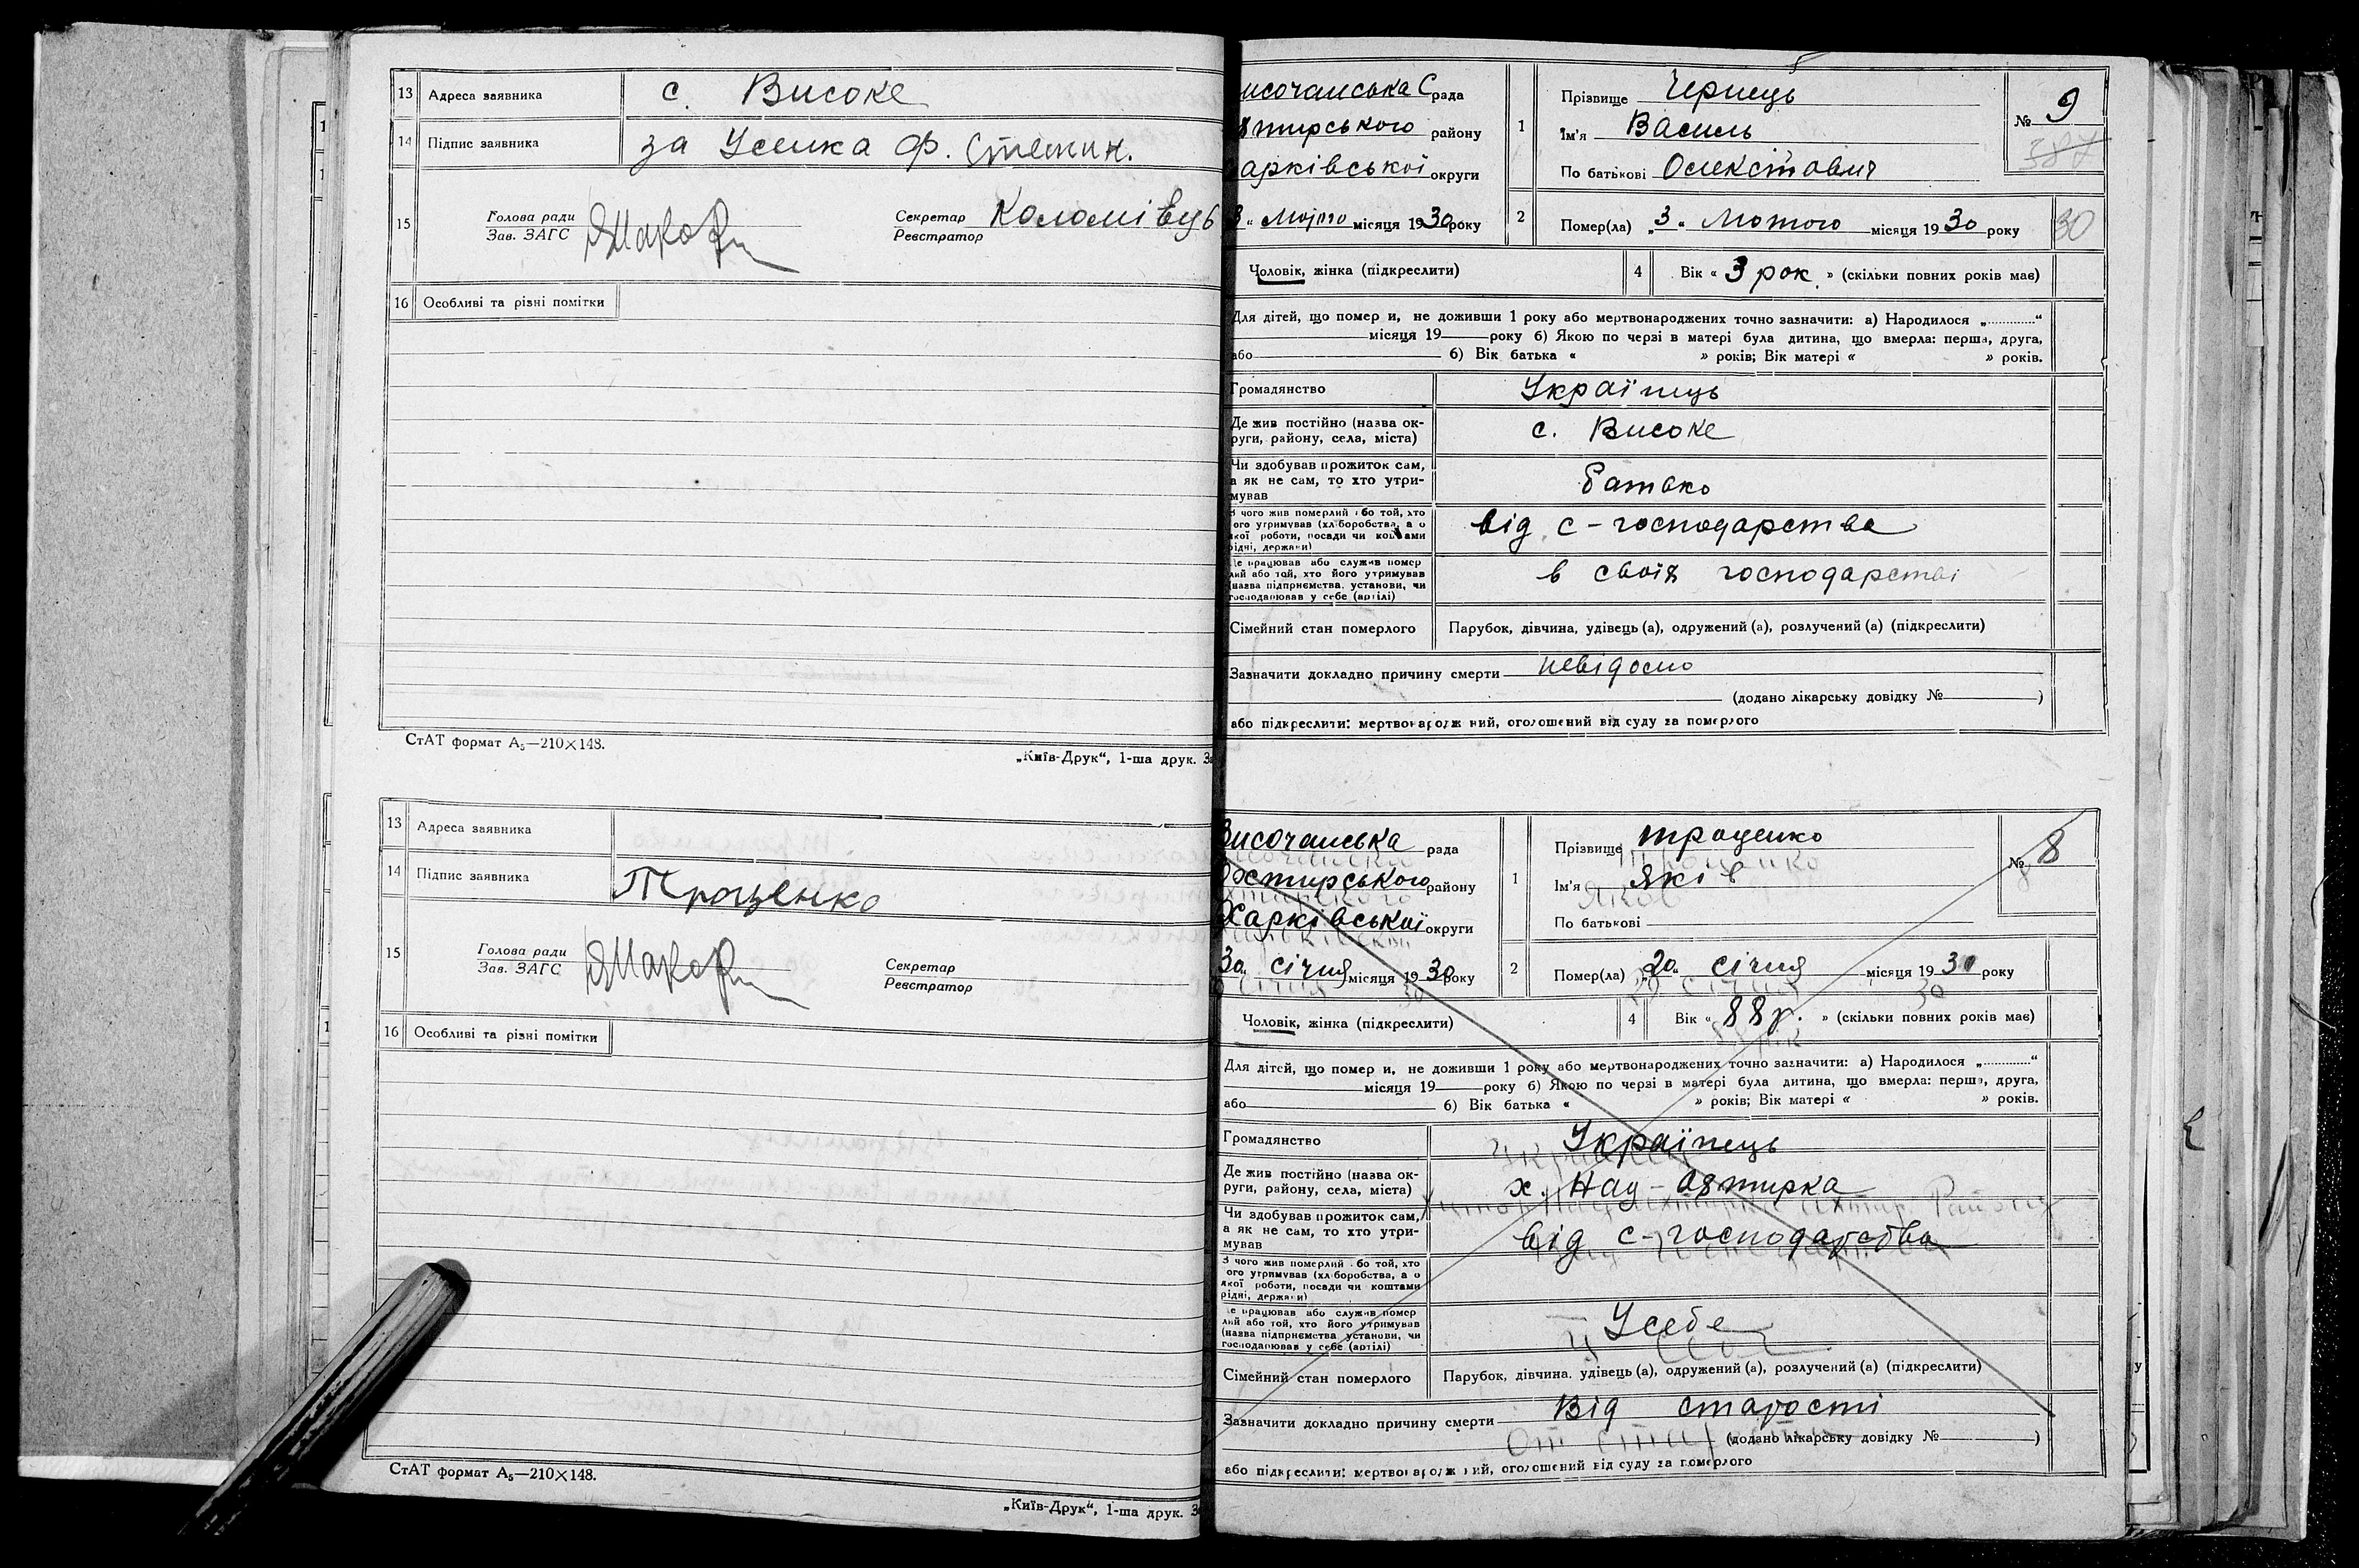 13 Адреса заявника с. Високе
14 Підпис заявника за Усика Ф. Степан.
15 Голова ради
Зав. ЗАГС
Секретар
Реєстратор Коломієць
16 Особливі та різні помітки
СтАТ формат А₅—210×148.
„Київ-Друк“, 1-ша друк. З
13 Адреса заявника
14 Підпис заявника Троценко
15 Голова ради
Зав. ЗАГС
Секретар
Реєстратор
16 Особливі та різні помітки
СтАТ формат А₅—210×148.
„Київ-Друк“, 1-ша друк. З
исочанська С рада
тирського району
арківської округи
3 „ лютого місяця 1930 року
1 Прізвище Чернець
Ім'я Василь
По батькові Олексійович
№ 9
387
2 Помер(ла) „3“ Лютого місяця 1930 року
30
Чоловік, жінка (підкреслити)
4 Вік « 3 рок. » (скільки повних років має)
Для дітей, що помер и, не доживши 1 року або мертвонароджених точно зазначити: а) Народилося „............“
місяця 19 року б) Якою по черзі в матері була дитина, що вмерла: перша, друга,
або б) Вік батька « » років; Вік матері « » років.
Громадянство Українець
Де жив постійно (назва ок-
руги, району, села, міста) с. Високе
Чи здобував прожиток сам,
а як не сам, то хто утри-
мував батько
З чого жив померлий або той, хто
ого утримував (хліборобства, а о
якої роботи, посади чи коштами
рідні, держави) від с-господарства
Де працював або служив помер
лий або той, хто його утримував
(назва підприємства, установи, чи
господарював у себе (артілі) в своїй господарстві
Сімейний стан померлого Парубок, дівчина, удівець (а), одружений (а), розлучений (а) (підкреслити)
Зазначити докладно причину смерти невідомо
(додано лікарську довідку № )
або підкреслити: мертвонароджений, оголошений від суду за померлого
Височанська рада
Охтирського району
Харківської округи
30 „ січня місяця 1930 року
1 Прізвище Троценко
Ім'я Яків
По батькові
№ 8
2 Помер(ла) „20“ січня місяця 1930 року
Чоловік, жінка (підкреслити)
4 Вік « 88 р. » (скільки повних років має)
Для дітей, що помер и, не доживши 1 року або мертвонароджених точно зазначити: а) Народилося „............“
місяця 19 року б) Якою по черзі в матері була дитина, що вмерла: перша, друга,
або б) Вік батька « » років; Вік матері « » років.
Громадянство Українець
Де жив постійно (назва ок-
руги, району, села, міста) х. Нау-Охтирка
Чи здобував прожиток сам,
а як не сам, то хто утри-
мував від с-господарства
З чого жив померлий або той, хто
ого утримував (хліборобства, а о
якої роботи, посади чи коштами
рідні, держави)
Де працював або служив помер
лий або той, хто його утримував
(назва підприємства установи, чи
господарював у себе (артілі) Усебе
Сімейний стан померлого Парубок, дівчина, удівець (а), одружений (а), розлучений (а) (підкреслити)
Зазначити докладно причину смерти Від старості
(додано лікарську довідку № )
або підкреслити: мертвонароджений, оголошений від суду за померлого